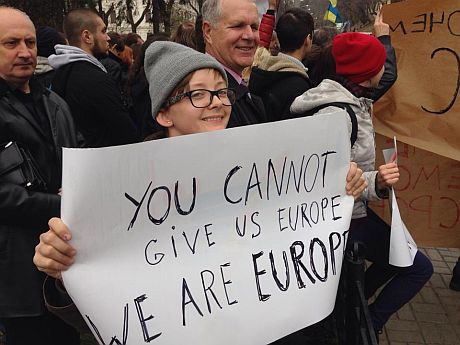 YOU CANNOT
GIVE US EUROPE
WE ARE EUROPE